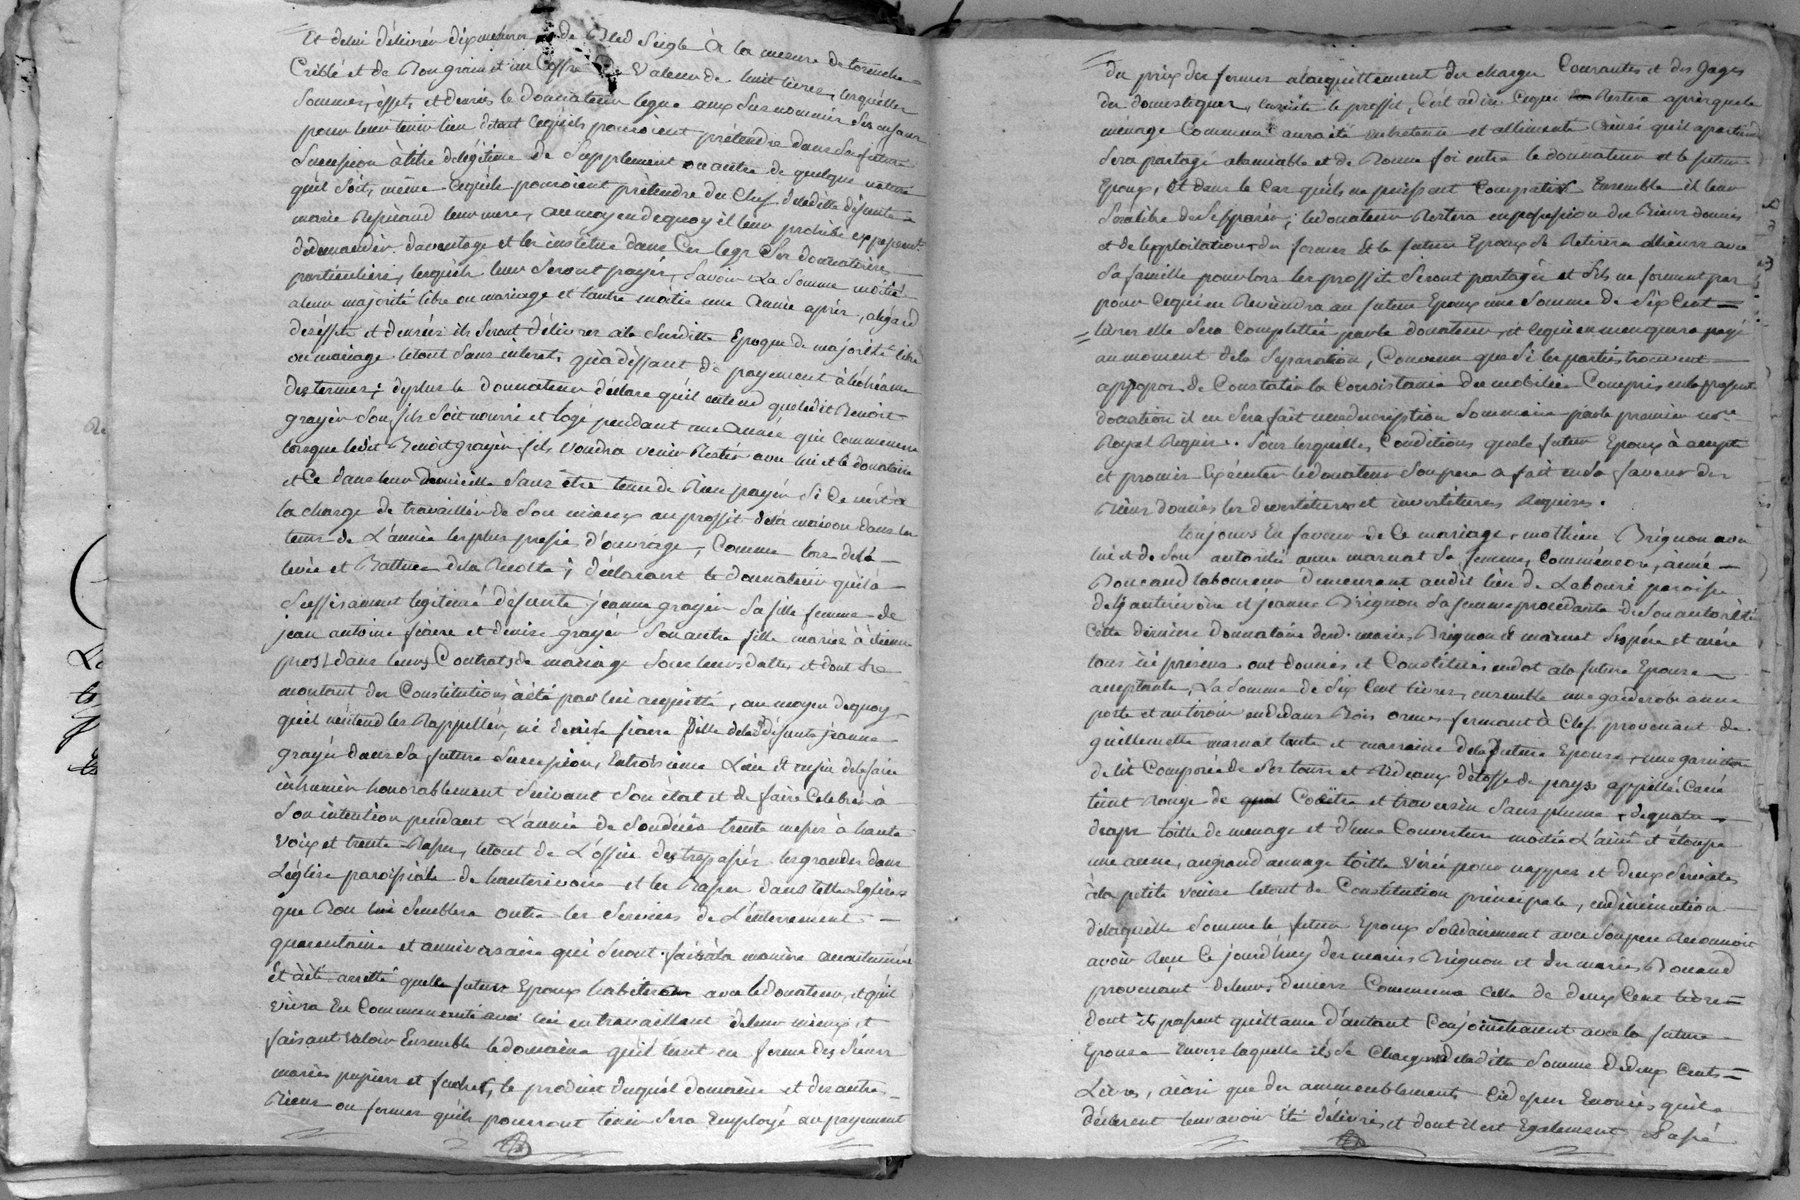 Et celui délivrer dix mesures de Bled Seigle à la mesure de
Criblé et de Bon grain et un Coffre Valeur de huit livres, lesquelles
Sommes, effets, et denrées le Donnateur legue aux Susnommés Ses enfans
pour leur tenir lieu détout cequils pouroient prétendre dans Sa future
Succession àtitre délégitime de Supplement ou autre de quelque nature
qu'il Soit, même cequils pouroient prétendre du Chef deladitte défunte
marie leur mere, aumoyen dequoy il leur prohibe expressement
dedemander davantage et les institue dans Ces legs Ses donnataires
particuliers, lesquels leur Seront payés, Savoir La Somme moitié
aleur majorité libre ou mariage et lautre moitié une Année après, alégard
deseffets et denrées ils Seront délivrés ala Susditte Epoque de majorité libre
ou mariage letout Sans interet, qu'a déffaut de payement à léchéance
des termes; deplus le Donnateur déclare qu'il entend queledit Benoit
grayer Son fils Soit nourri et logé pendant une Année qui Commencera
lorsque ledit Benoit grayer fils Voudra venir Rester avec lui et le donataire
et Ce dans leur domicille Sans être tenu de Rien payer Si Ce n'est à
la charge de travailler de Son mieux au proffit dela maison dans les
tems de L'année les plus pressés d'ouvrage, Comme lors dela
levée et Batture dela Recolte; déclarant le donnateur qu'il a
Suffisament legitimé défunte jeanne grayer Sa fille femme de
jean antoine fiaere et denise grayer Son autre fille mariée à étienne
pros dans leurs Contrats de mariage Sous leurs dattes et dont le
montant des Constitutions à été par lui acquitté, au moyen dequoy
qu'il n'entend les Rappeller, ni denise fiaere fille deladite défunte jeanne
grayer dans Sa future Succession, Entroisieme Lieu Et enfin delefaire
inhumer honorablement Suivant Son état et de faire Celebrer à
Son intention pendant L'année de Son décès trente messes à haute
Voix et trente Basses, letout de L'office des trepassés les grandes dans
L'église paroissiale de hauterivoire et les Basses dans telle Eglises
que Bon lui Semblera outre les Services de L'enterrement
quarantaine et anniversaire qui Seront faits àla maniere accoutumée
Et à été arretté quele futur Epoux habitera avec ledonnateur, et qu'il
vivra En Communauté avec lui en travaillant deleur mieux, et
faisant valoir Ensemble ledomaine qu'il tient en ferme des Sieurs
mariés papiers et, le produit duquel domaine et des autres
Biens ou fermes qu'ils pourront tenir Sera Employé au payement
du prix des fermes alacquittement des charges Courantes et des Gages
des domestiques, ensuite le proffit, C'est adire cequi Restera aprèsquele
ménage Commun aura été entretenu et allimenté Ainsi qu'il apartiend
Sera partagé alamiable et de Bonne foi entre le donnateur et le futur
Epoux, Et dans le Cas qu'ils ne puissent Compatir Ensemble il leur
Sera libre de Sesparer; ledonateur Restera en possession des Biens donnés
et de lexploitation des fermes Et le futur Epoux Se Retirera ailleurs avec
Sa famille pour lors les proffits Seront partagés et S'ils ne forment pas
pour cequi en Reviendra au futur Epoux une Somme de Six Cent
livres elle Sera Complettée parle donateur, et cequi en manquera payé
au moment dela Separation, Convenu que Si les parties trouvent
appropos de Constater la Consistance du mobilier Compris enla présente
donation il en Sera fait une description Sommaire parle premier no.re
Royal Requis. Sous lesquelles Conditions quele futur Epoux à accepté
et promis Exécuter ledonateur Son pere a fait en Sa faveur des
Biens donnés les devestitures et investitures Requises.
toujours En faveur de Ce mariage, mathieu Brignon avec
lui et de Son autorité anne marnat Sa femme, aimé
Boucaud laboureur demeurant audit lieu de Labouré paroisse
de hauterivoire et jeanne Brignon Sa femme procedante de Son autorité
Cette derniere donnataire desd. mariés Brignon & marnat Ses pere et mere
tous ici présens ont donnés et Constitués endot ala future Epouse
acceptante, La Somme de Six Cent livres, ensemble une garderobe a une
porte et un tiroir endedans Bois ormes fermant à Clef provenant de
guillemette marnat tante et marraine dela future Epouse, une garniture
de lit Composée de Ses tours et Rideaux d'étoffe de pays appellée Cané
teint Rouge de Coëtre et traversin Sans plume, de quatre
draps toille de menage et d'une Couverture moitié Laine et étoupe
une aune, augrand aunage toille pour nappes et deux Serviettes
à la petite letout de Constitution principale, en diminution
delaquelle Somme le futur Epoux Solidairement avec Son pere Reconnoit
avoir Reçu Ce jourd'huy des mariés Brignon et des mariés Boucaud
provenant deleurs deniers Communs celle de deux Cent livres
dont ils passent quittance d'autant Conjointement avec la future
Epouse Envers laquelle ils Se Chargent deladitte Somme dedeux Cents
Livres, ainsi que des ammeublements cidessus Enoncés qu'ils
déclarent leur avoir Eté délivrés et dont il est Egalement Passé